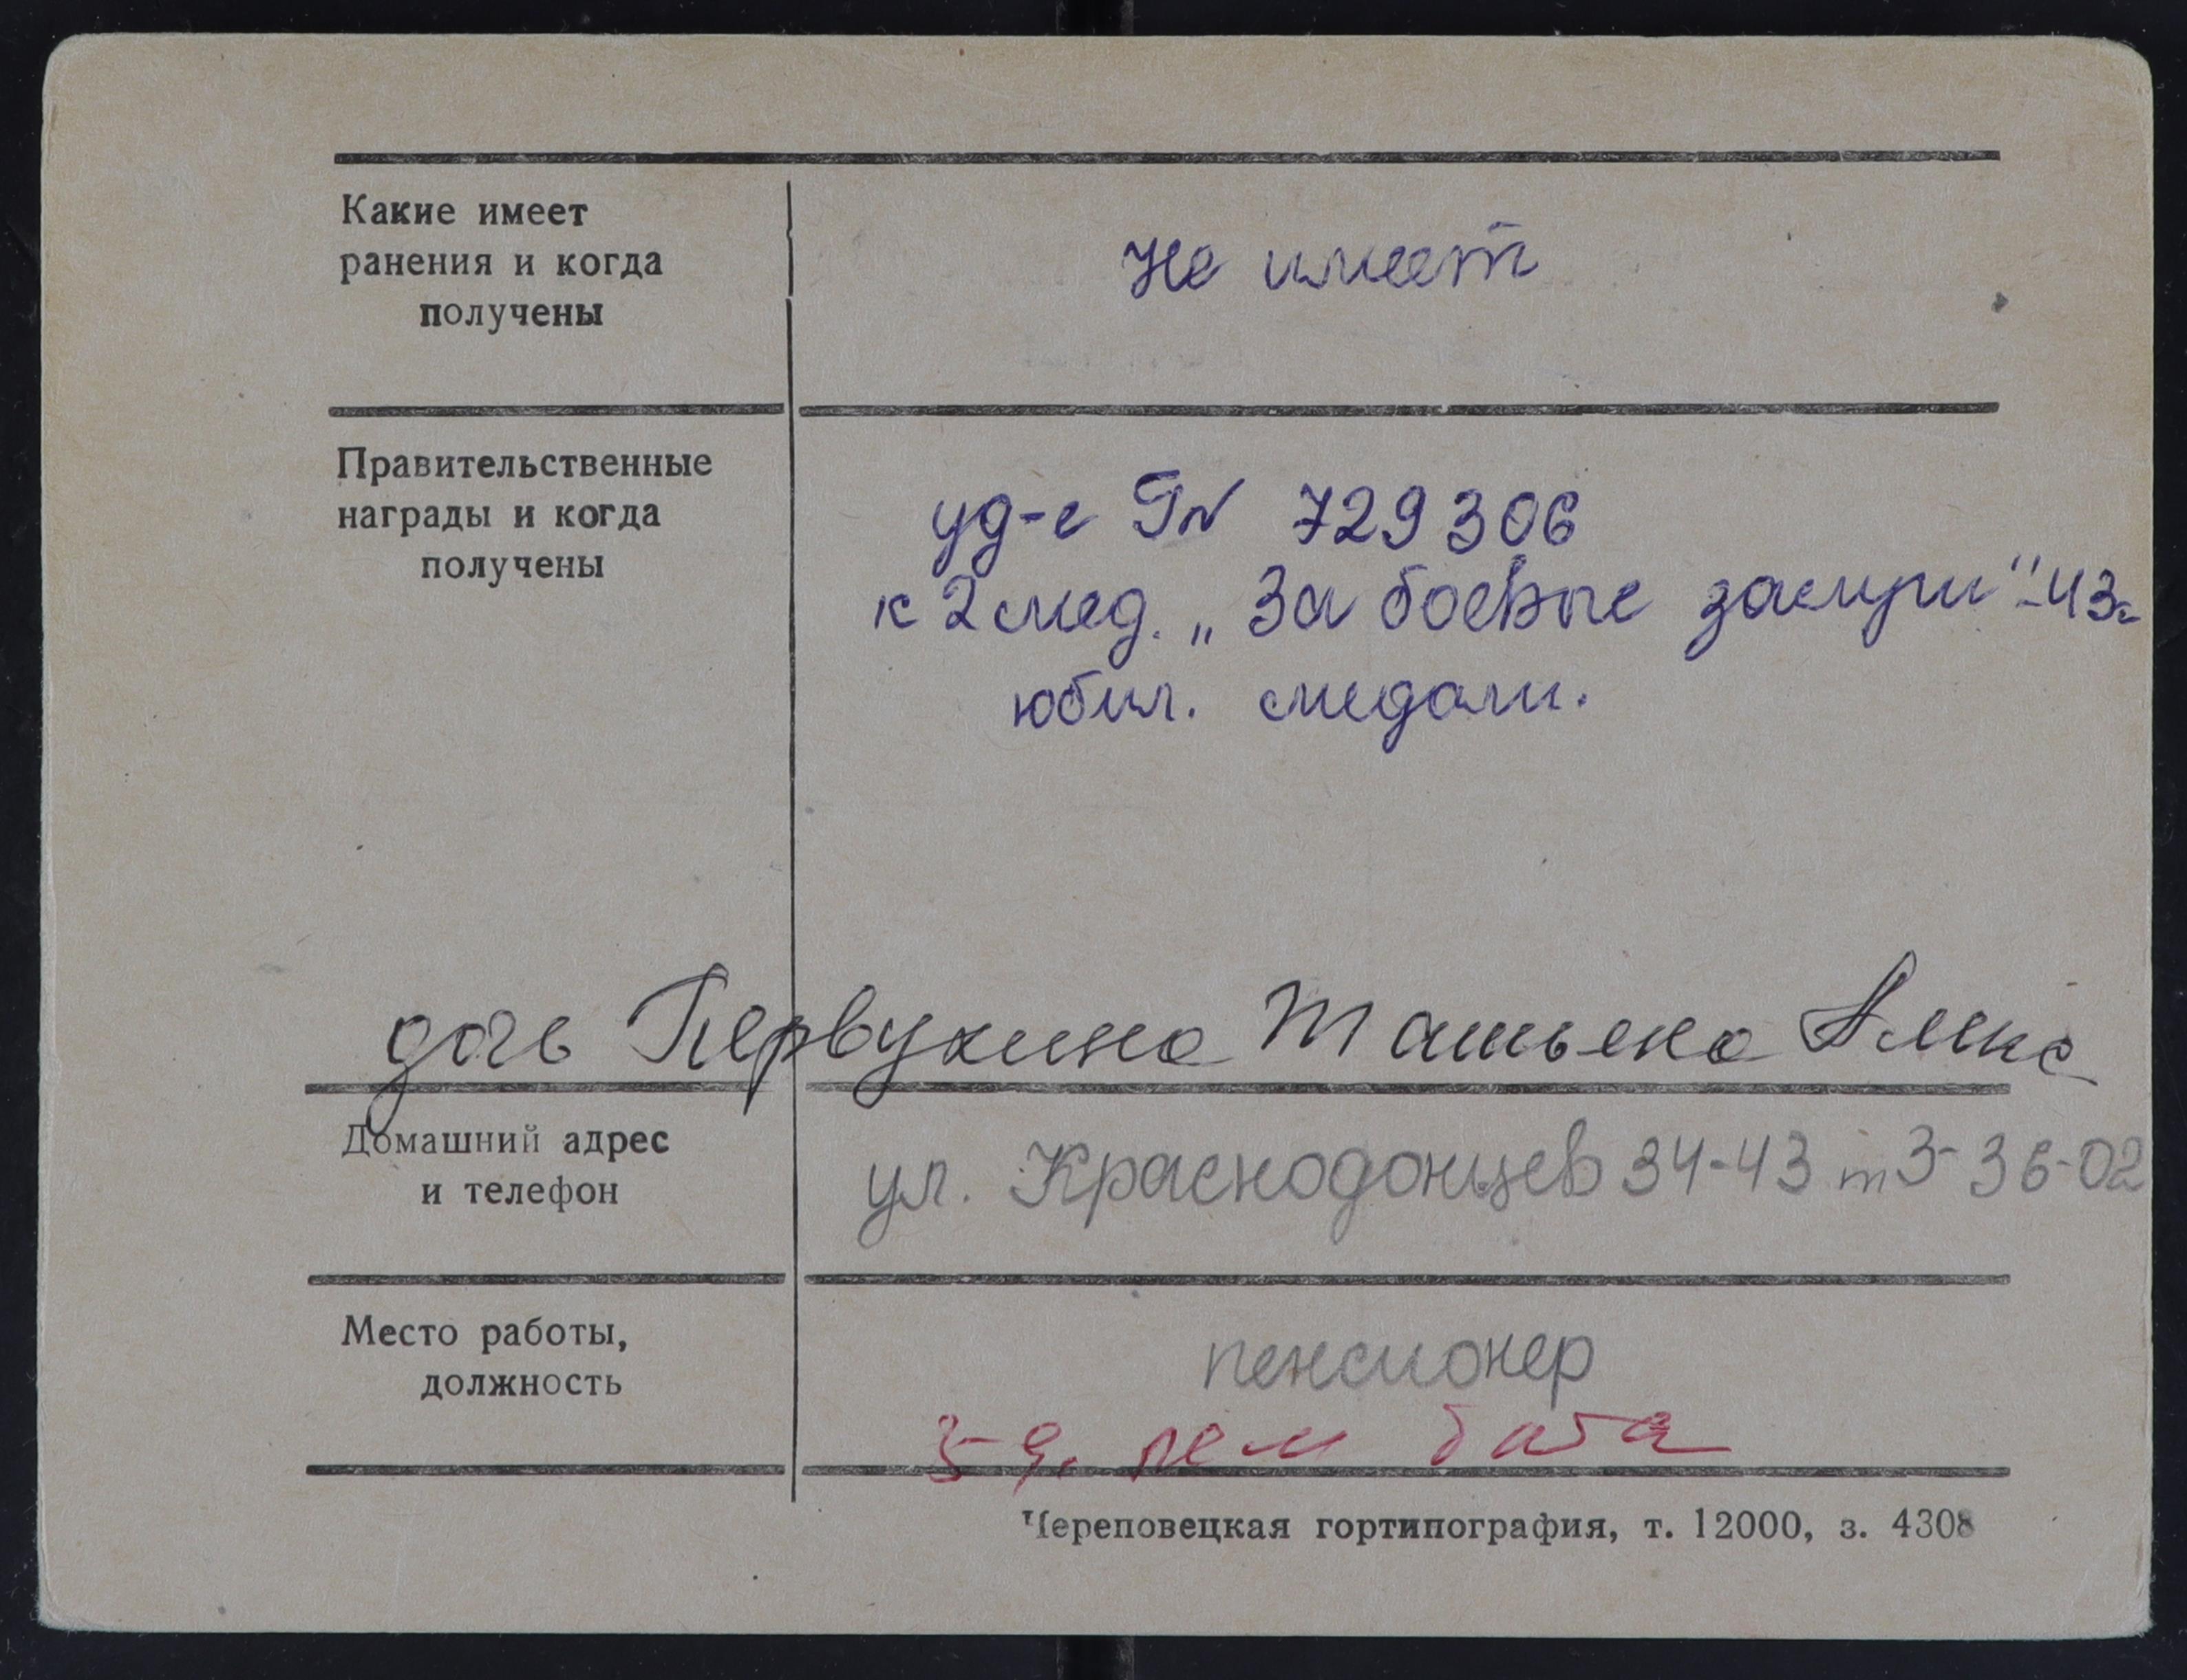 Какие имеет
ранения и когда
получены
Не имеет
Правительственные
награды и когда
получены
уд-е 729306
к 2 мед. „За боевые заслуги"-43г
юбил. медали.
дочь Первухина Татьяна Алекс
Домашний адрес
и телефон
ул. Краснодонцев 34-43 т 3-36-02
Место работы,
должность
пенсионер
рем бата
Череповецкая гортипография, т. 12000, з. 4308